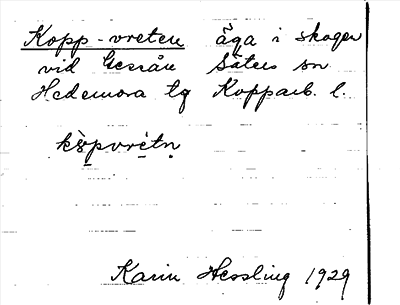 Kopp-vreten äga i skogen
vid Gessån Säters sn
Hedemora tg Kopparb. l.
kòpvrètn̥
Karin Hessling 1929